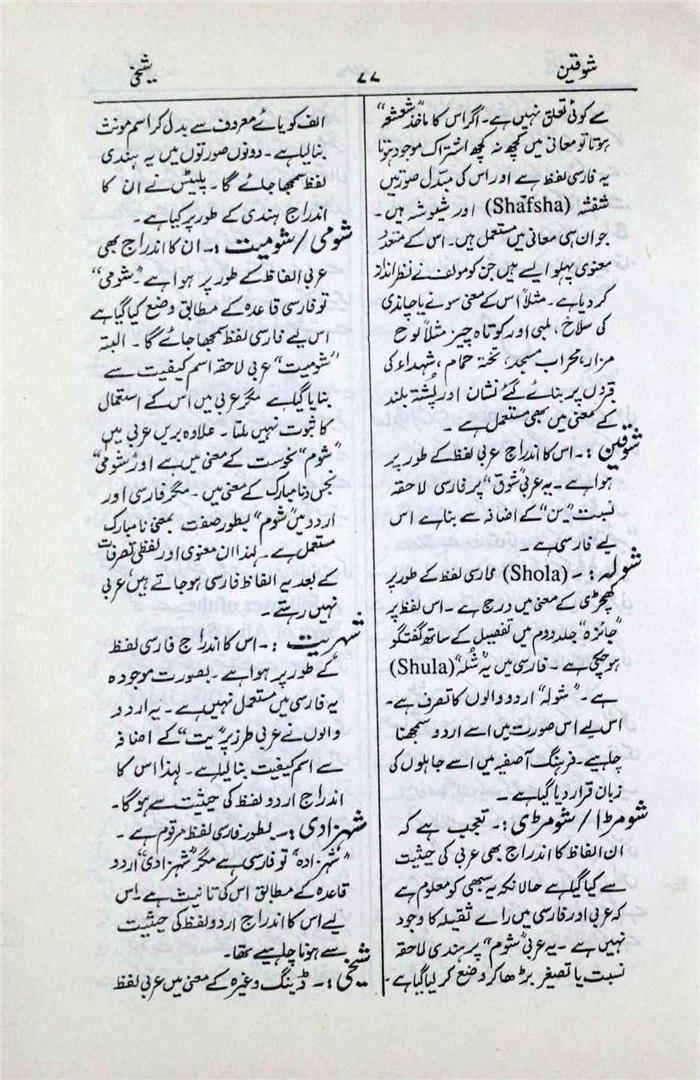 شوقین
۷۷
شیخی
سے کوئی تعلق نہیں ہے۔ اگر اس کا ماخذ "شعشعہ"
ہوتا تو معانی میں کچھ نہ کچھ اشتراک موجود ہوتا
یہ فارسی لفظ ہے اور اس کی مبدّل صورتیں
شفشہ (Shafsha) اور شیوشہ ہیں۔
جو ان ہی معانی میں مستعمل ہیں۔ اس کے متعدد
معنوی پہلو ایسے ہیں جن کو مولف نے نظر انداز
کر دیا ہے۔ مثلاً اس کے معنی سونے یا چاندی
کی سلاخ، لمبی اور کوتاہ چیز مثلاً لوح
مزار، محراب مسجد، تختہ حمام، شہداء کی
قبروں پر بنائے گئے نشان اور پشتہ بلند
کے معنی میں بھی مستعمل ہے۔
شوقین :۔ اس کا اندراج عربی لفظ کے طور پر
ہوا ہے۔ یہ عربی "شوق" پر فارسی لاحقہ
نسبت "ین" کے اضافہ سے بنا ہے اس
لیے فارسی ہے۔
شولہ :۔ (Shola) فارسی لفظ کے طور پر
کھچڑی کے معنی میں درج ہے۔ اس لفظ پر
"جائزہ" جلد دوم میں تفصیل کے ساتھ گفتگو
ہو چکی ہے۔ فارسی میں یہ "شُلہ" (Shula)
ہے۔ "شولہ" اردو والوں کا تصرف ہے۔
اس لیے اس صورت میں اسے اردو سمجھنا
چاہیے۔ فرہنگ آصفیہ میں اسے جاہلوں کی
زبان قرار دیا گیا ہے۔
شومڑا / شومڑی :۔ تعجب ہے کہ
ان الفاظ کا اندراج بھی عربی کی حیثیت
سے کیا گیا ہے حالانکہ یہ سبھی کو معلوم ہے
کہ عربی اور فارسی میں رائے ثقیلہ کا وجود
نہیں ہے۔ یہ عربی "شوم" پر ہندی لاحقہ
نسبت یا تصغیر بڑھا کر وضع کر لیا گیا ہے۔
الف کو یائے معروف سے بدل کر اسم مونث
بنا لیا ہے۔ دونوں صورتوں میں یہ ہندی
لفظ سمجھا جائے گا۔ پلیٹس نے ان کا
اندراج ہندی کے طور پر کیا ہے۔
شومی / شومیت :۔ ان کا اندراج بھی
عربی الفاظ کے طور پر ہوا ہے۔ "شومی"
تو فارسی قاعدہ کے مطابق وضع کیا گیا ہے
اس لیے فارسی لفظ سمجھا جائے گا۔ البتہ
"شومیت" عربی لاحقہ اسم کیفیت سے
بنایا گیا ہے مگر عربی میں اس کے استعمال
کا ثبوت نہیں ملتا۔ علاوہ بریں عربی میں
"شوم" نحوست کے معنی میں ہے اور "شومی"
نجس و نامبارک کے معنی میں۔ مگر فارسی اور
اردو میں "شوم" بطور صفت بمعنی نامبارک
مستعمل ہے۔ لہٰذا ان معنوی اور لفظی تصرفات
کے بعد یہ الفاظ فارسی ہو جاتے ہیں عربی
نہیں رہتے۔
شہریت :۔ اس کا اندراج فارسی لفظ
کے طور پر ہوا ہے۔ بصورت موجودہ
یہ فارسی میں مستعمل نہیں ہے۔ یہ اردو
والوں نے عربی طرز پر "یت" کے اضافہ
سے اسم کیفیت بنا لیا ہے۔ لہٰذا اس کا
اندراج اردو لفظ کی حیثیت سے ہوگا۔
شہزادی :۔ بطور فارسی لفظ مرقوم ہے۔
"شہزادہ" تو فارسی ہے مگر "شہزادی" اردو
قاعدہ کے مطابق اس کی تانیث ہے۔ اس
لیے اس کا اندراج اردو لفظ کی حیثیت
سے ہونا چاہیے تھا۔
شیخی :۔ ڈینگ وغیرہ کے معنی میں عربی لفظ